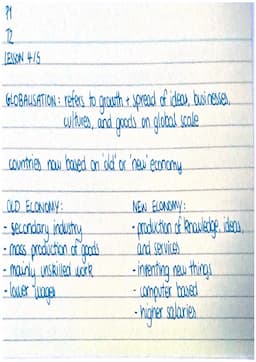 P1
T2
LESSON 4/5
GLOBALISATION: refers to growth + spread of ideas, businesses,
cultures, and goods on global scale
countries now based on 'old' or 'new' economy
OLD ECONOMY:
- secondary industry
- mass production of goods
- mainly unskilled work
- lower wages
NEW ECONOMY:
- production of knowledge, ideas,
and services
- inventing new things
- computer based
- higher salaries